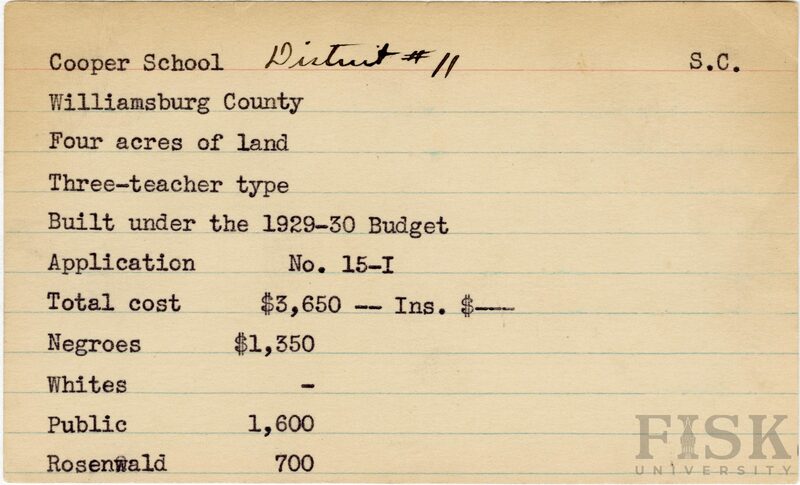 Cooper School District #11 S.C.
Williamsburg County
Four acres of land
Three-teacher type
Built under the 1929-30 Budget
Application No. 15-I
Total cost $3,650 -- Ins. $---
Negroes $1,350
Whites -
Public 1,600
Rosenwald 700
FISK
UNIVERSITY